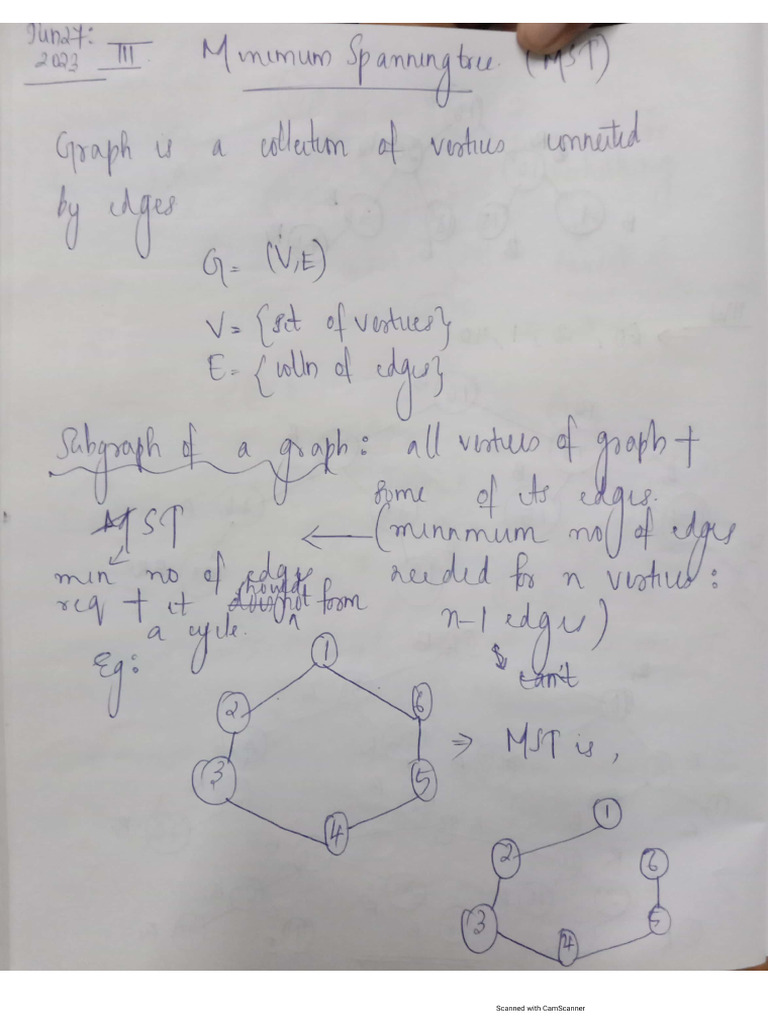 Jun 27:
2023 III
Minimum Spanning tree. (MST)
Graph is a collection of vertices connected
by edges
G = (V,E)
V = {set of vertices}
E = {colln of edges}
Subgraph of a graph: all vertices of graph +
some of its edges.
(minnmum no of edges
needed for n vertices:
n-1 edges)
can't
MST
min no of edges
req + it does should not form
a cycle.
Eg:
1
2
6
3
5
4
⇒ MST is,
1
2
6
3
5
4
Scanned with CamScanner